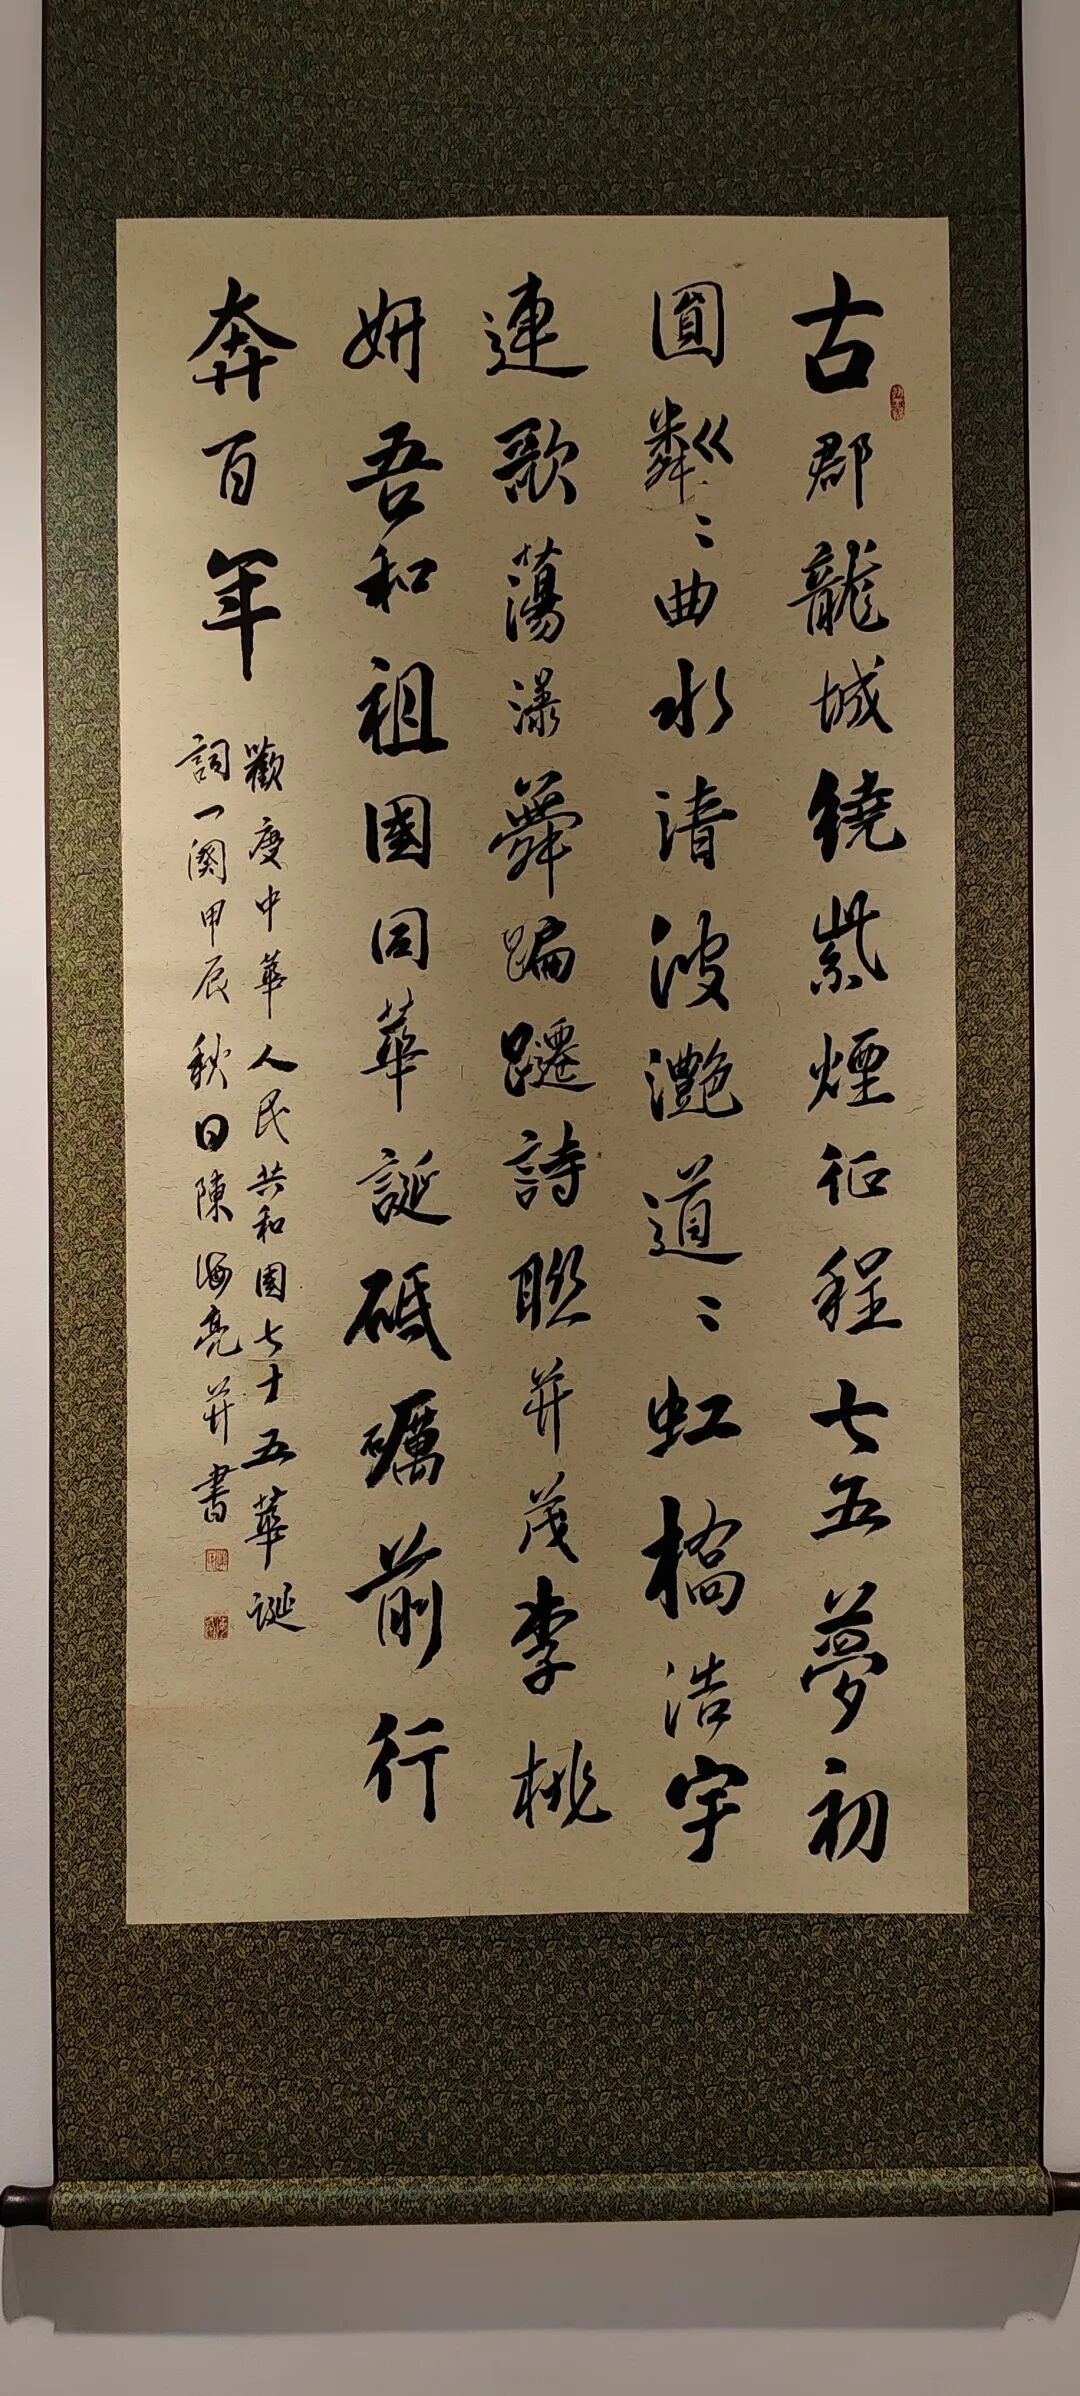 古郡龍城繞紫煙征程七五夢初
圓粼〻曲水清波灔道〻虹橋浩宇
連歌蕩漾舞蹁躚詩聯并茂李桃
妍吾和祖國同華誕砥礪前行
奔百年
歡度中華人民共和國七十五華誕
詞一闋甲辰秋日陳海亮并書